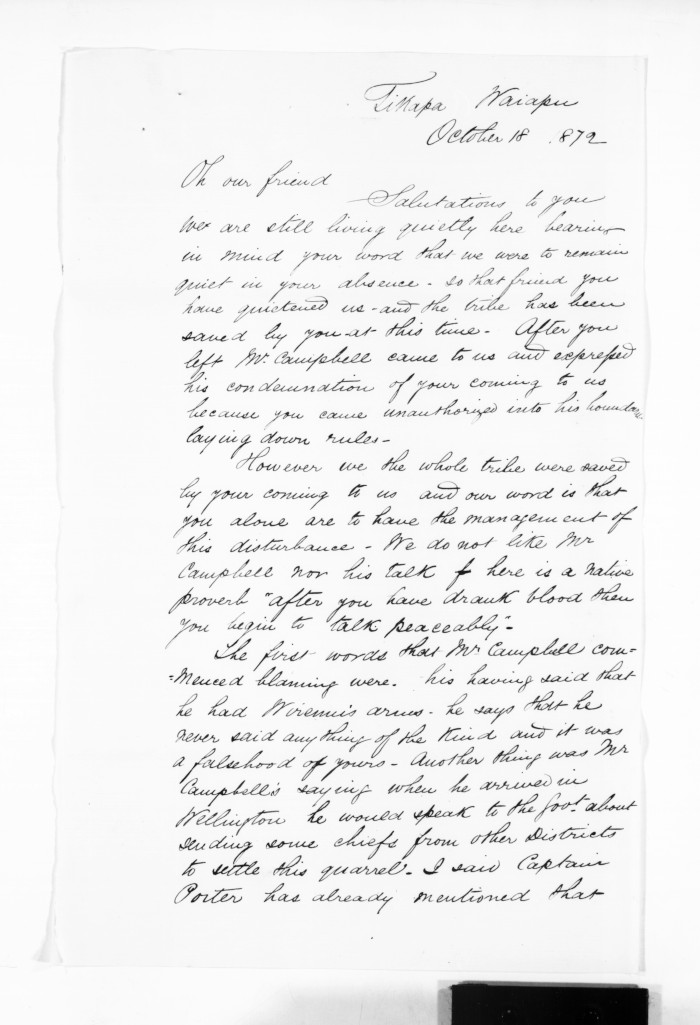 Tikapa Waiapu
October 18 1872
Oh our friend
Salutations to you
We are still living quietly here bearing
in mind your word that we were to remain
quiet in your absence - so that friend you
have quietened us - and the tribe has been
saved by you at this time - After you
left Mr. Campbell came to us and expressed
his condemnation of your coming to us
because you came unauthorized into his
laying down rules -
However we the whole tribe were saved
by your coming to us and our word is that
you alone are to have the management of
this disturbance - We do not like Mr
Campbell nor his talk here is a native
proverb "after you have drank blood then
you begin to talk peaceably" -
The first words that Mr Campbell com=
=menced blaming were. his having said that
he had Wiremu's arms - he says that he
never said anything of the kind and it was
a falsehood of yours - Another thing was Mr
Campbell's saying when he arrived in
Wellington he would speak to the Govt. about
sending some chiefs from other Districts
to settle this quarrel - I said Captain
Porter has already mentioned that